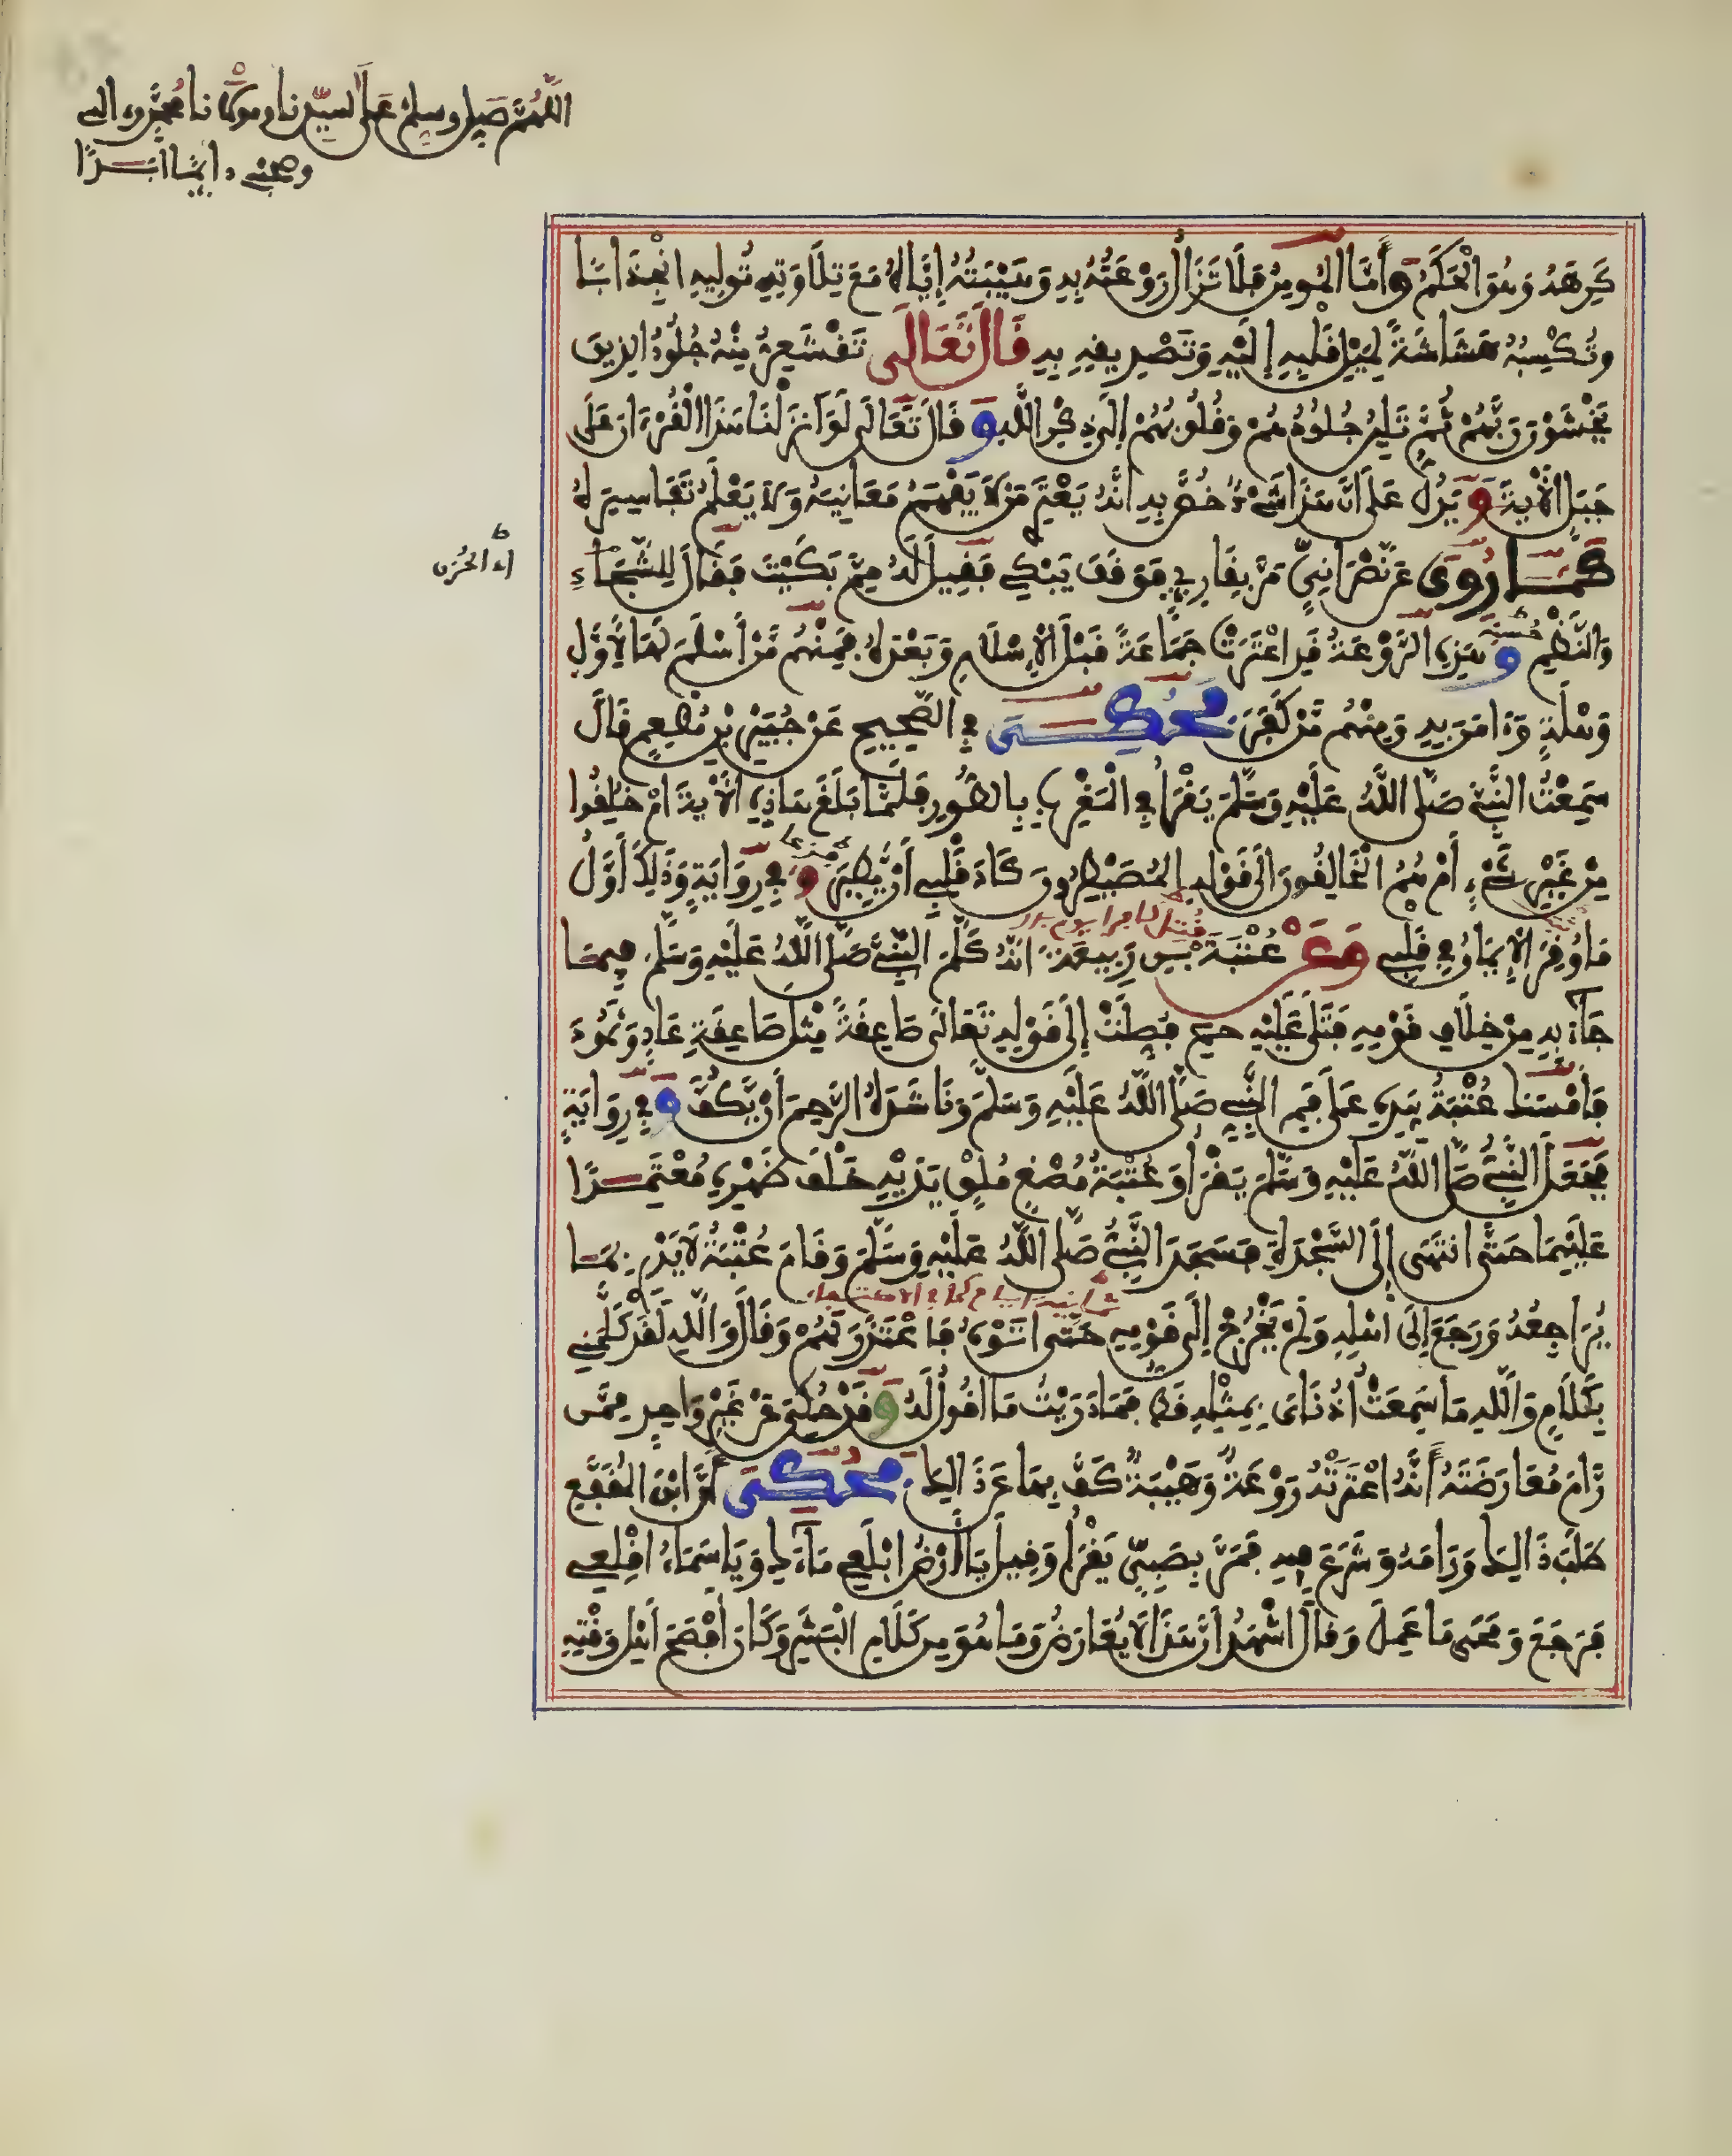 اللهم صل وسلم على سيدنا ومولانا محمد وءاله
وصحبه دايما ابدا
كَرِهَهُ وَهُوَ الْحَكَمُ وَأَمَّا الْمُومِنُ فَلَا تَزَالُ رَوْعَتُهُ بِهِ وَهَيْبَتُهُ إِيَّاهُ مَعَ تِلَاوَتِهِ تُولِيهِ انْجِذَابًا
وتُكْسِبُهُ هَشَاشَةً لِمَيْلِ قَلْبِهِ إِلَيْهِ وَتَصْدِيقِهِ بِهِ قَالَ تَعَالَى تَقْشَعِرُّ مِنْهُ جُلُودُ الذِينَ
يَخْشَوْنَ رَبَّهُمْ ثُمَّ تَلِينُ جُلُودُهُمْ وَقُلُوبُهُمْ إِلَى ذِكْرِ اللَّهِ وَقَالَ تَعَالَى لَوَ انزَلْنَا هَذَا الْقُرْءَانَ عَلَى
جَبَلٍ الْآيَةَ وَيَدُلُّ عَلَى أَنَّ هَذَا شَيْءٌ خُصَّ بِهِ انَّهُ يَعْتَرِي مَنْ لَا يَفْهَمُ مَعَانِيَهُ وَلَا يَعْلَمُ تَفَاسِيرَهُ
كَمَا رُوِيَ عَنْ نَصْرَانِيٍّ مَرَّ بِقَارِيٍ فَوَقَفَ يَبْكِي فَقِيلَ لَهُ مِمَّ بَكَيْتَ فَقَالَ لِلشَّجَاءِ
أي الحزن
وَالنَّظْمِ وَهَذِهِ الرَّوْعَةُ قَدِ اعْتَرَتْ جَمَاعَةً قَبْلَ الْإِسْلَامِ وَبَعْدَهُ فَمِنْهُمْ مَنْ أَسْلَمَ لَهَا لِأَوَّلِ
وَهْلَةٍ وَءَامَنَ بِهِ وَمِنْهُمْ مَنْ كَفَرَ فَحُكِيَ فِي الصَّحِيحِ عَنْ جُبَيْرِ بْنِ مُطْعِمٍ قَالَ
سَمِعْتُ النَّبِيَّ صَلَّى اللَّهُ عَلَيْهِ وَسَلَّمَ يَقْرَأُ فِي الْمَغْرِبِ بِالطُّورِ فَلَمَّا بَلَغَ هَذِهِ الْآيَةَ أَمْ خُلِقُوا
مِنْ غَيْرِ شَيْءٍ أَمْ هُمُ الْخَالِقُونَ الَى قَوْلِهِ الْمُصَيْطِرُونَ كَادَ قَلْبِي أَنْ يَطِيرَ وَفِي رِوَايَةٍ وَذَلِكَ أَوَّلُ
مَا وُقِرَ الْإِيمَانُ فِي قَلْبِي وَعَنْ عُتْبَةَ بْنِ رَبِيعَةَ انَّهُ كَلَّمَ النَّبِيَّ صَلَّى اللَّهُ عَلَيْهِ وَسَلَّمَ فِيمَا
جَاءَ بِهِ مِنْ خِلَافِ قَوْمِهِ فَتَلَى عَلَيْهِ حم فُصِّلَتْ إِلَى قَوْلِهِ تَعَالَى صَاعِقَةً مِثْلَ صَاعِقَةِ عَادٍ وَثَمُودَ
فَأَمْسَكَ عُتْبَةُ بِيَدِهِ عَلَى فَمِ النَّبِيِّ صَلَّى اللَّهُ عَلَيْهِ وَسَلَّمَ وَنَاشَدَهُ الرَّحِمَ أَنْ يَكُفَّ وَفِي رِوَايَةٍ
فَجَعَلَ النَّبِيُّ صَلَّى اللَّهُ عَلَيْهِ وَسَلَّمَ يَقْرَأُ وَعُتْبَةُ مُصْغٍ مُلْقٍ يَدَيْهِ خَلْفَ ظَهْرِهِ مُعْتَمِدًا
عَلَيْهِمَا حَتَّى انْتَهَى إِلَى السَّجْدَةِ فَسَجَدَ النَّبِيُّ صَلَّى اللَّهُ عَلَيْهِ وَسَلَّمَ وَقَامَ عُتْبَةُ لَا يَدْرِي بِمَا
يُرَاجِعُهُ وَرَجَعَ إِلَى اهْلِهِ وَلَمْ يَخْرُجْ إِلَى قَوْمِهِ حَتَّى اتَوْهُ فَاعْتَذَرَ لَهُمْ وَقَالَ وَاللَّهِ لَقَدْ كَلَّمَنِي
بِكَلَامٍ وَاللَّهِ مَا سَمِعَتْ أُذُنَايَ بِمِثْلِهِ قَطُّ فَمَا دَرَيْتُ مَا أَقُولُ لَهُ وَقَدْ حُكِيَ عَنْ غَيْرِ وَاحِدٍ مِمَّنْ
رَامَ مُعَارَضَتَهُ أَنَّهُ اعْتَرَتْهُ رَوْعَةٌ وَهَيْبَةٌ كَفَّ بِهَا عَنْ ذَالِكَ فَحُكِيَ أَنَّ ابْنَ الْمُقَفَّعِ
طَلَبَ ذَالِكَ وَرَامَهُ وَشَرَعَ فِيهِ فَمَرَّ بِصَبِيٍّ يَقْرَأُ وَقِيلَ يَا أَرْضُ ابْلَعِي مَاءَكِ وَيَا سَمَاءُ اقْلِعِي
فَرَجَعَ وَمَحَى مَا عَمِلَ وَقَالَ اشْهَدُ أَنَّ هَذَا لَا يُعَارَضُ وَمَا هُوَ مِن كَلَامِ الْبَشَرِ وَكَانَ أَفْصَحَ أَهْلِ وَقْتِهِ